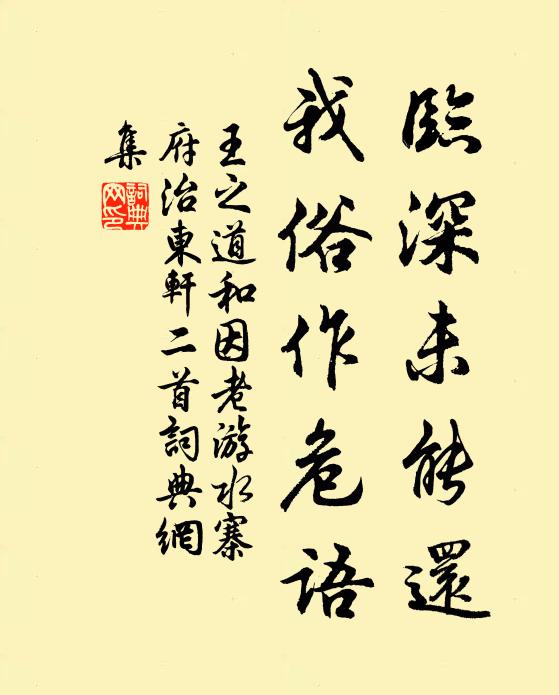 臨深未能還
我俗作危語
王之道和因老游水寨
府治東軒二首詞典網
集
詞典
网印